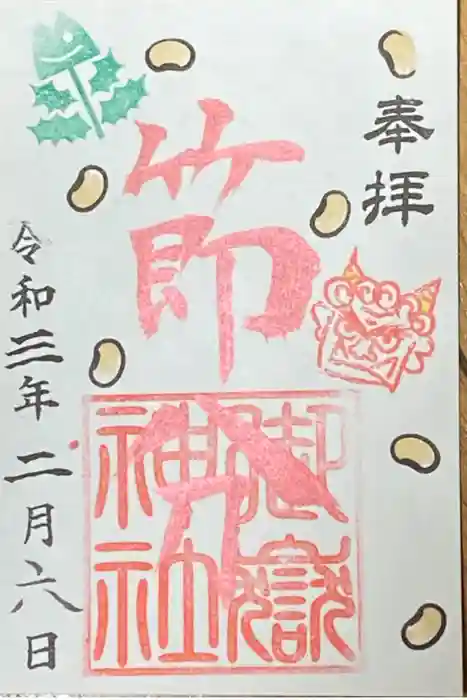 奉拝
節分
御嶽
神社
令和三年二月六日